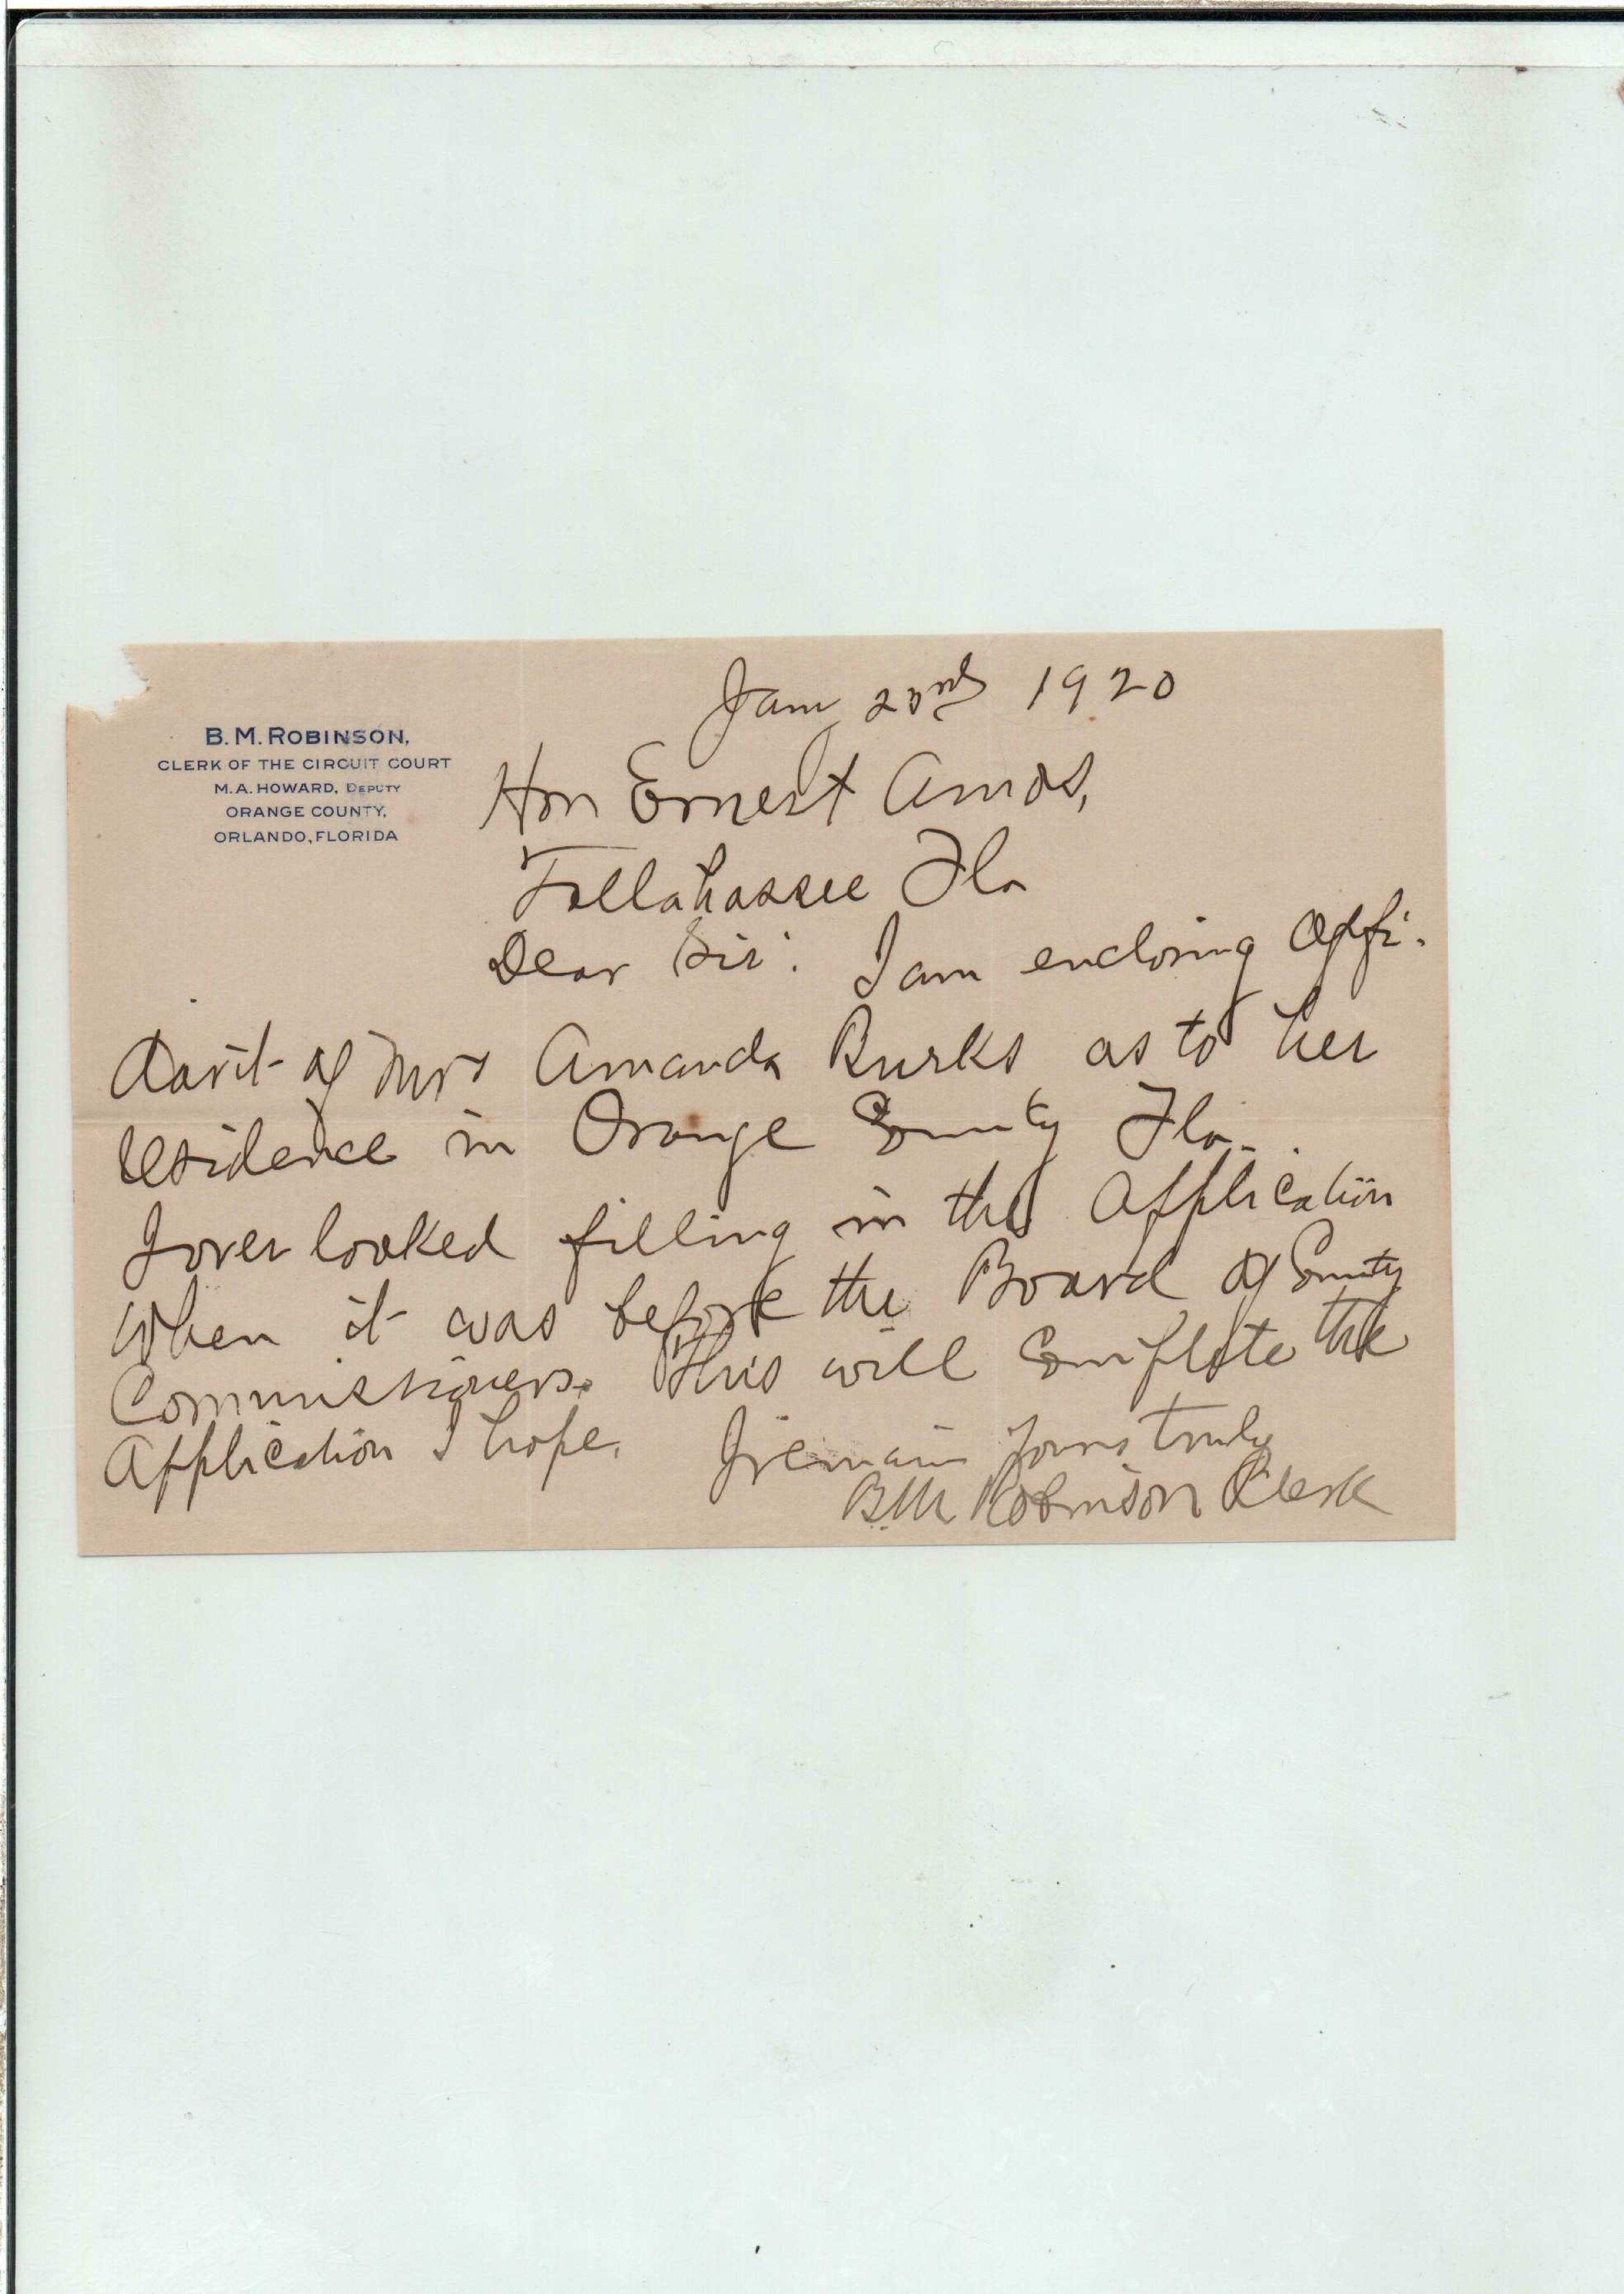 B. M. ROBINSON,
CLERK OF THE CIRCUIT COURT
M. A. HOWARD, DEPUTY
ORANGE COUNTY,
ORLANDO, FLORIDA
Jany 1920
Hon Ernest Amos,
Tallahassee Fla
Dear Sir: I am enclosing Affi-
davit of Mrs Amanda Burks as to her
residence in Orange County Fla.
I over looked filling in the Application
When it was before the Board of County
Commissioners. This will Complete the
Application I hope. I remain yours truly
B M Robinson Clerk